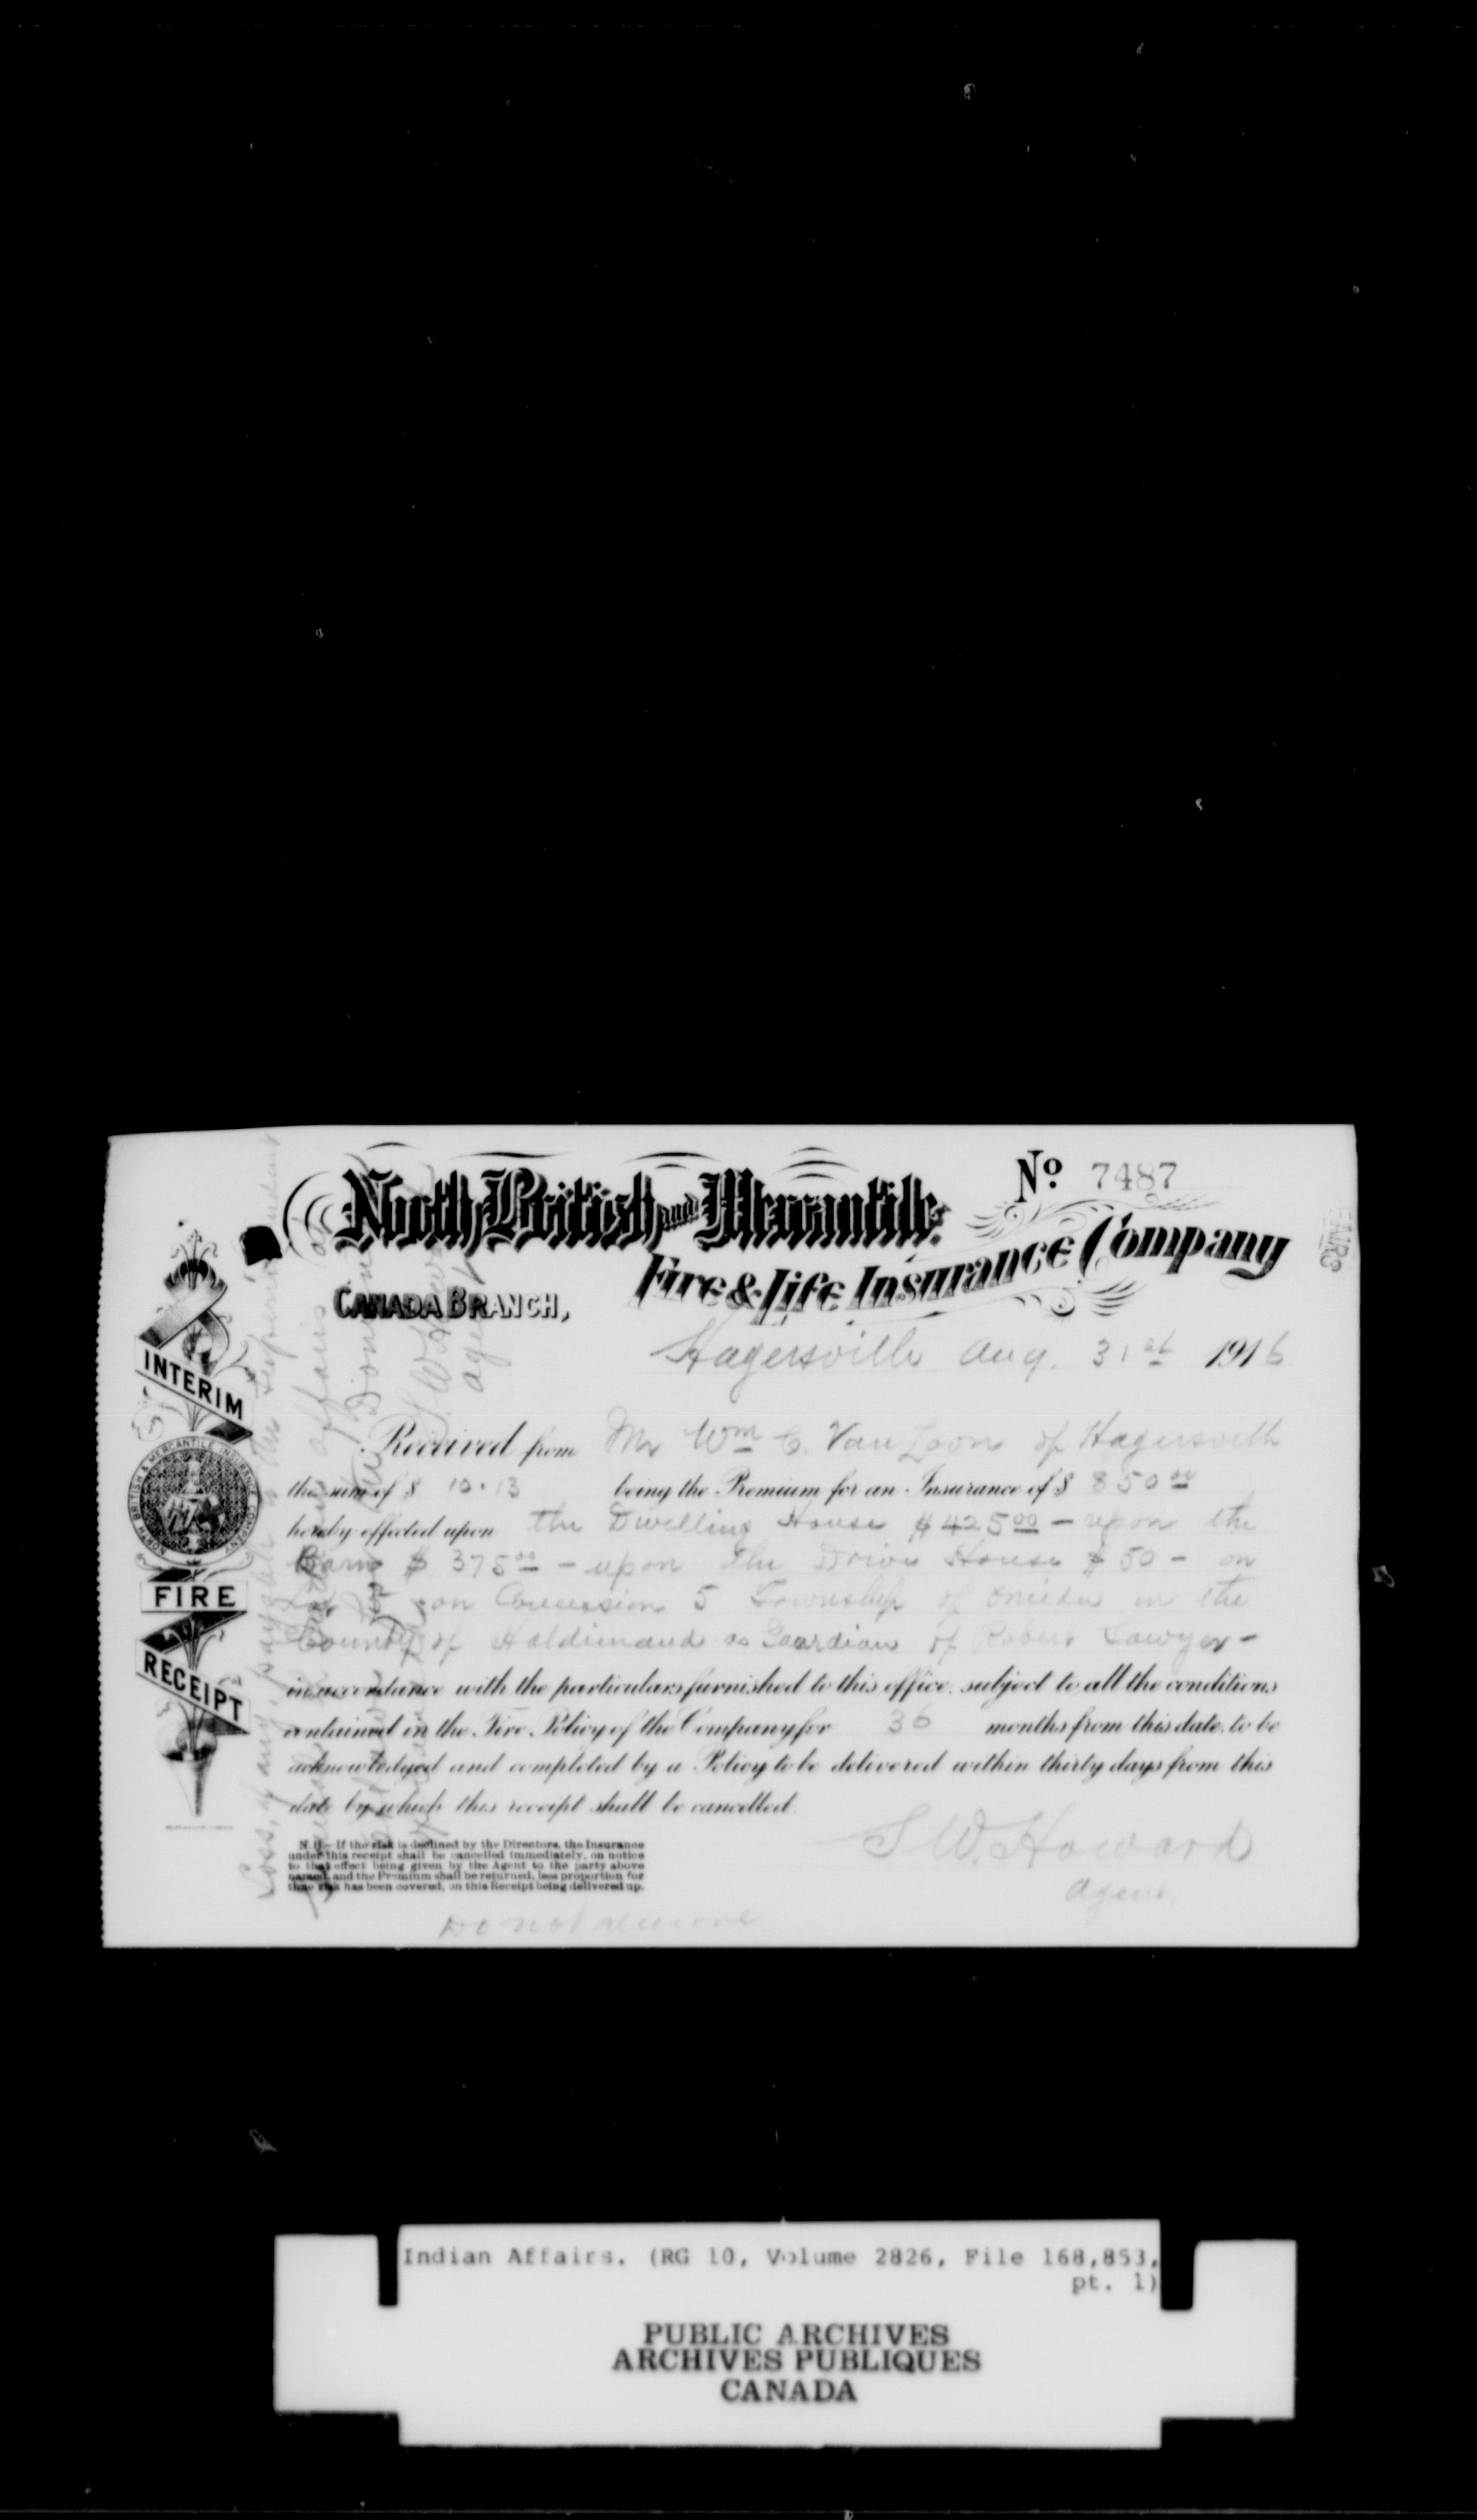 No 7487
North British and Mercantile
Fire & Life Insurance Company
CANADA BRANCH,
Hagersville Aug. 31st 1916
INTERIM
FIRE
RECEIPT
NORTH BRITISH & MERCANTILE INSURANCE COMPANY
Received from Mr Wm C. Van Loon of Hagersville
the sum of $ 10.13 being the Premium for an Insurance of $ 850 00
hereby effected upon the Dwelling House $ 425 00 - upon the
Barn $ 375 00 - upon the Drive House $ 50 - on
Lot on Concession 5 Township of Oneida in the
County of Haldimand as Guardian of Robert Sawyer -
in accordance with the particulars furnished to this office, subject to all the conditions
contained in the Fire Policy of the Company for 36 months from this date, to be
acknowledged and completed by a Policy to be delivered within thirty days from this
date by which this receipt shall be cancelled.
S. W. Howard
Agent.
N.B.- If the risk is declined by the Directors, the Insurance
under this receipt shall be cancelled immediately, on notice
to that effect being given by the Agent to the party above
named, and the Premium shall be returned, less proportion for
time risk has been covered, on this Receipt being delivered up.
Do not remove
Loss, if any, payable to the Superintendent
Affairs
Agent
Indian Affairs. (RG 10, Volume 2826, File 168,853,
pt. 1)
PUBLIC ARCHIVES
ARCHIVES PUBLIQUES
CANADA